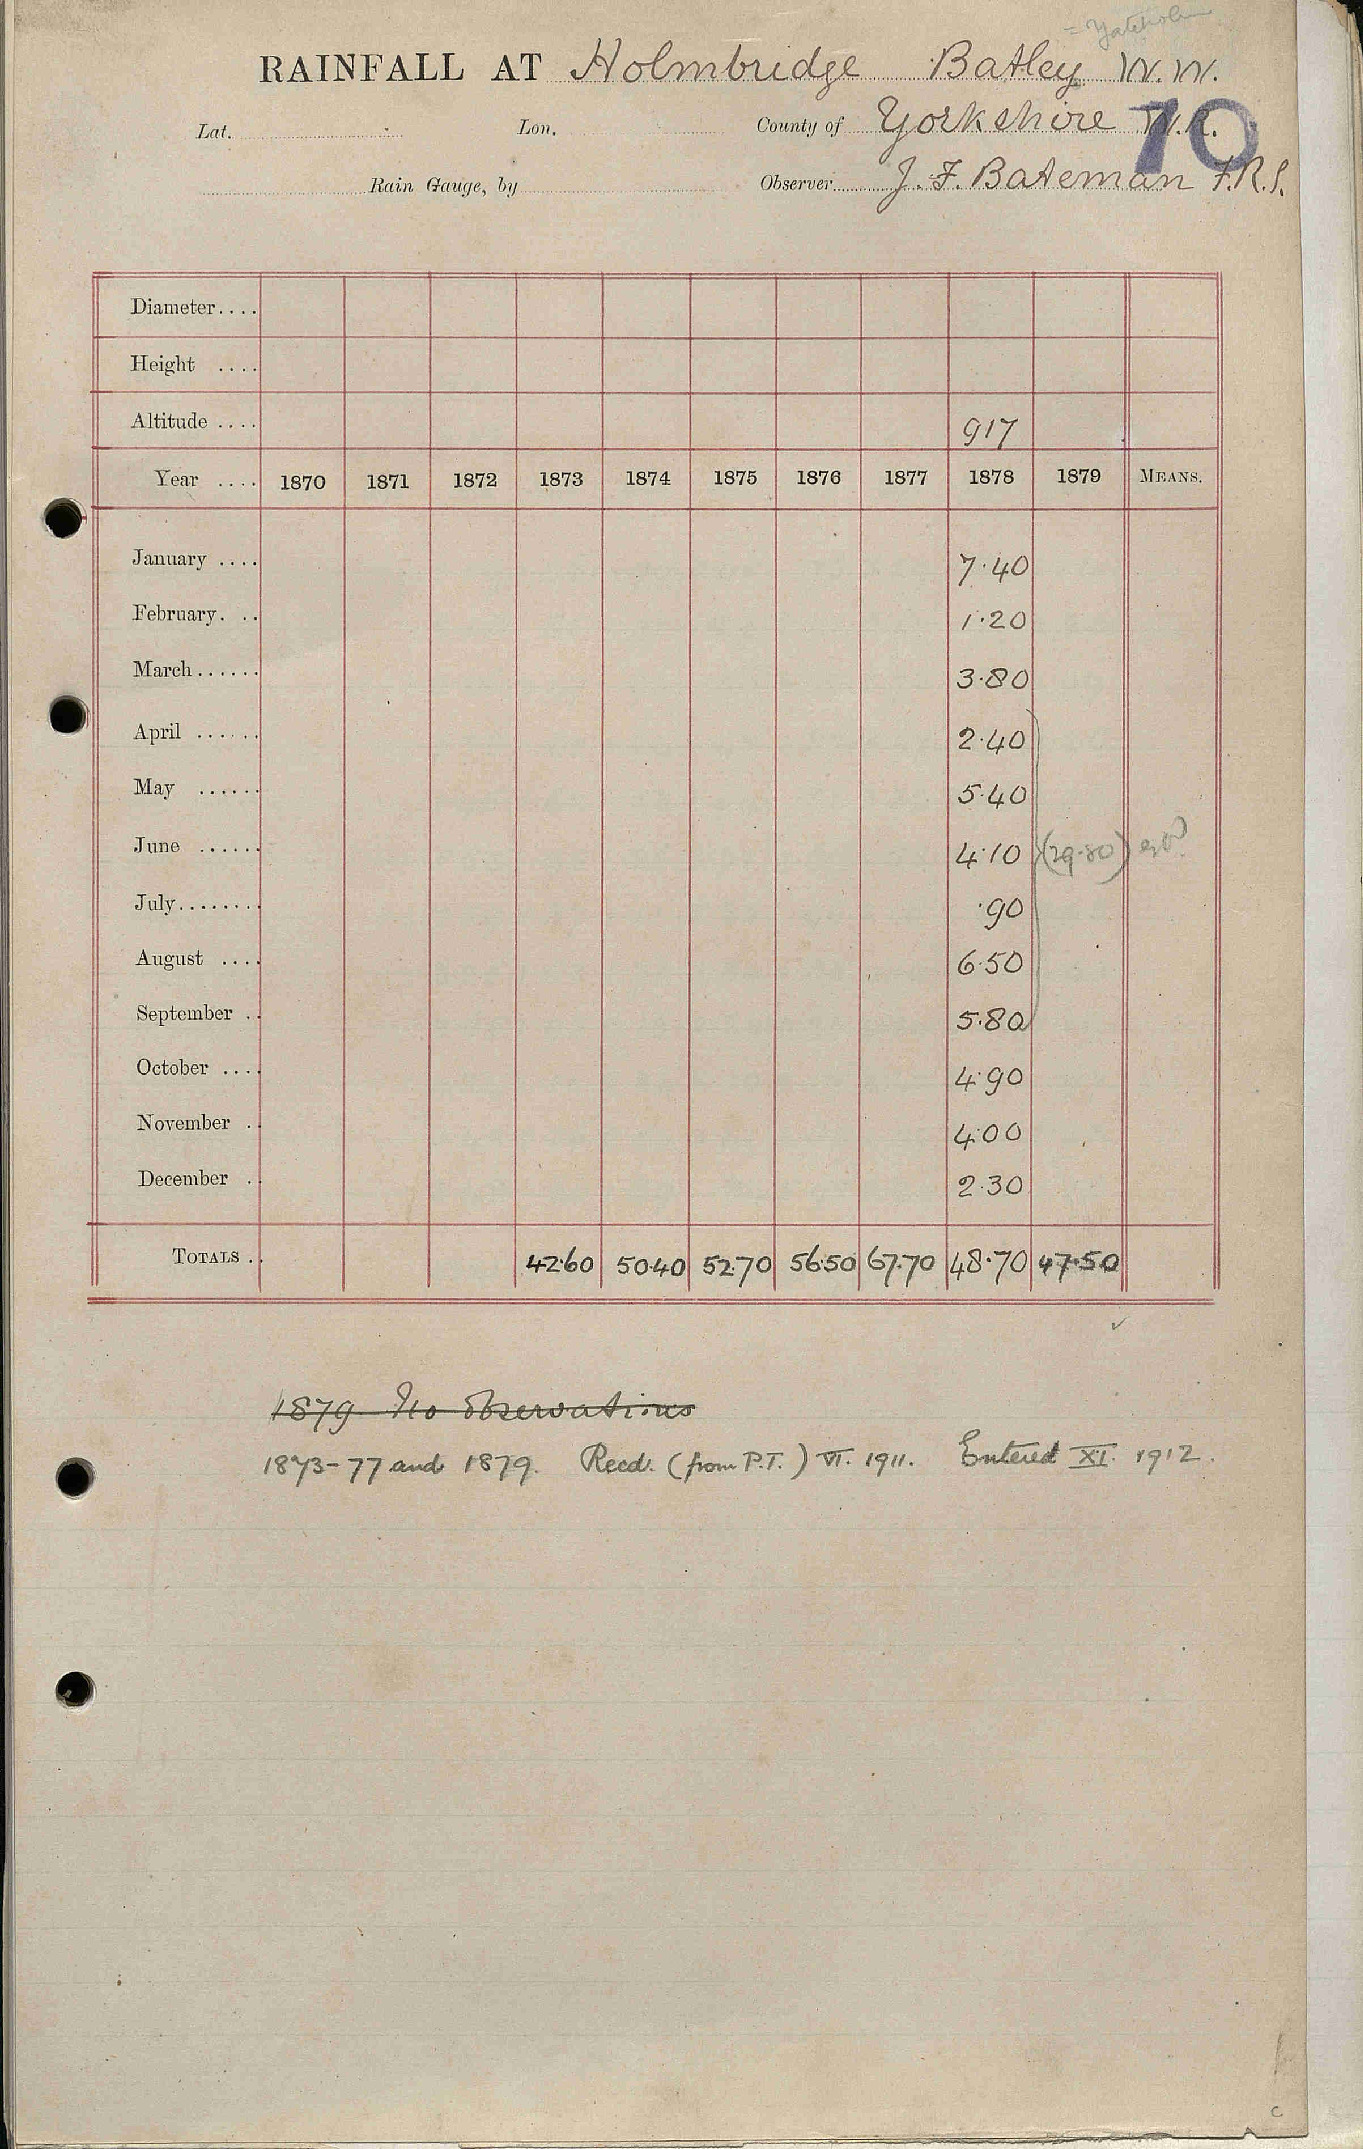 = Yateholme
RAINFALL AT Holmbridge Batley W.W.
Lat. Lon. County of Yorkshire W.R.
70
Rain Gauge, by Observer J. F. Bateman F.R.S.
Diameter....
Height ....
Altitude .... 917
Year .... 1870 1871 1872 1873 1874 1875 1876 1877 1878 1879 MEANS.
January .... 7.40
February. .. 1.20
March...... 3.80
April ...... 2.40
May ...... 5.40
June ...... 4.10 (29.80)
July........ .90
August .... 6.50
September .. 5.80
October .... 4.90
November .. 4.00
December .. 2.30
TOTALS .. 42.60 50.40 52.70 56.50 67.70 48.70 47.50
1879 No observations
1873-77 and 1879. Recd. (from P.T.) VI. 1911. Entered XI. 1912.
c